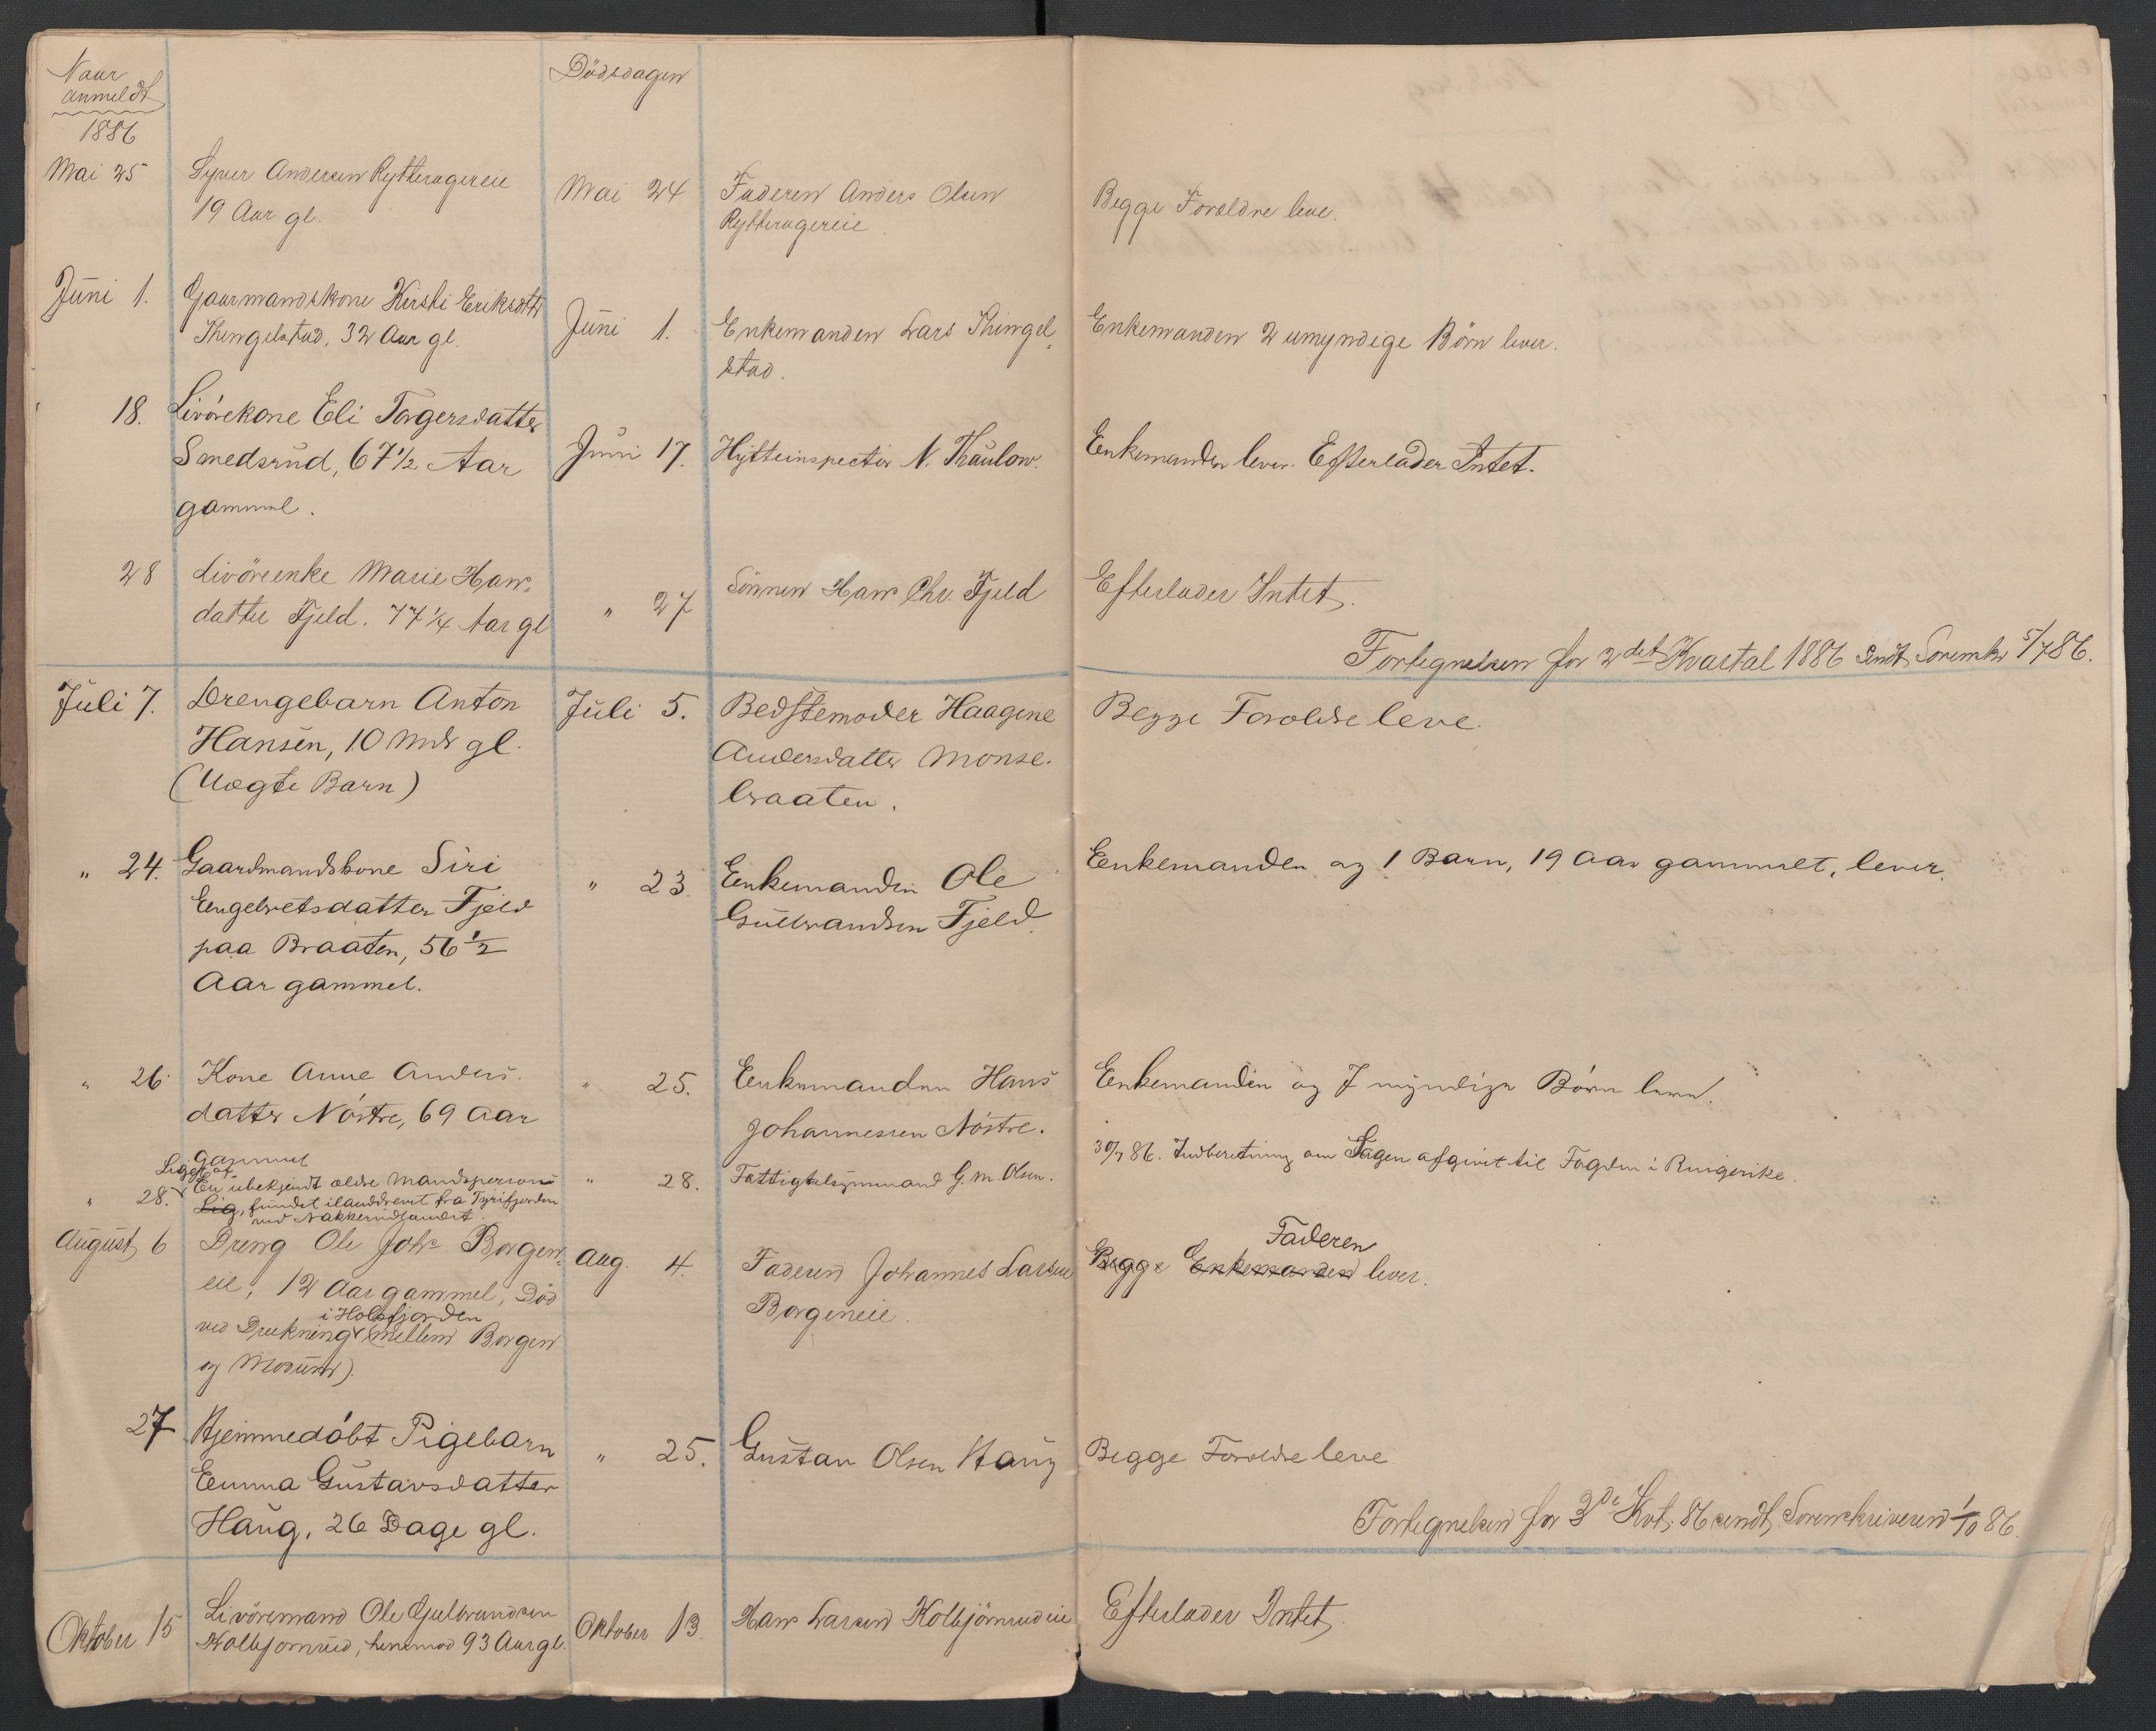 Naar
anmeldt
Dödsdagen
1886
Mai 25
Syver Andersen Rytteragereie
19 Aar gl.
Mai 24
Faderen Anders Olsen
Rytteragereie.
Begge Forældre leve.
Juni 1.
Gaarmandskone Kirsti Eriksdtr
Thengelstad, 32 Aar gl.
Juni 1.
Enkemanden Lars Thingel
stad.
Enkemanden 2 umyndige Börn lever.
18.
Livörekone Eli Torgersdatter
Smedsrud, 67 1/2 Aar
gammel.
Juni 17.
Hytteinspectör N. Thaulow.
Enkemanden lever. Efterlader Intet.
28
Livöreenke Marie Hans
datter Fjeld. 77 1/4 Aar gl
" 27
Sönnen Hans Chr. Fjeld
Efterlader Intet.
Fortegnelsen for 2det Kvartal 1886 sendt Sorenskr 5/7 86.
Juli 7.
Drengebarn Anton
Hansen, 10 Mdr gl.
(Uægte Barn)
Juli 5.
Bedstemoder Haagine
Andersdatter Monse-
braaten.
Begge Foroldre leve.
" 24.
Gaardmandskone Siri
Engebretsdatter Fjeld
paa Braaten, 56 1/2
Aar gammel.
" 23.
Enkemanden Ole
Gulbrandsen Fjeld.
Enkemanden og 1 Barn, 19 Aar gammelt, lever.
" 26.
Kone Anne Anders-
datter Nöstre, 69 Aar
gammel
" 25.
Enkemanden Hans
Johannesen Nöstre.
Enkemanden og 7 myndige Börn lever.
" 28.
Liget af
En ubekjendt ældre Mandsperson
Lig, fundet ilanddrevet fra Tyrifjorden
ved Nakkerudlandet.
" 28.
Fattigtilsynsmand G. M. Olsen.
30/7 86. Indberetning om Sagen afgivet til Fogden i Ringerike.
August 6
Dreng Ole Johs Borgen
eie, 12 Aar gammel, Död
i Holsfjorden
ved Drukning (mellem Borgen
og Modum).
Aug. 4.
Faderen Johannes Larsen
Borgeneie.
Faderen
Begge Enkemanden lever.
27
Hjemmedöbt Pigebarn
Emma Gustavsdatter
Haug, 26 Dage gl.
" 25.
Gustav Olsen Haug
Begge Foroldre leve
Fortegnelsen for 3de Kvt. 86 sendt Sorenskriveren 1/10 86.
Oktober 15
Livöremand Ole Gulbrandsen
Kolbjornrud, henimod 93 Aar gl.
Oktober 13.
Hans Larsen Kolbjörnrudeie
Efterlader Intet.